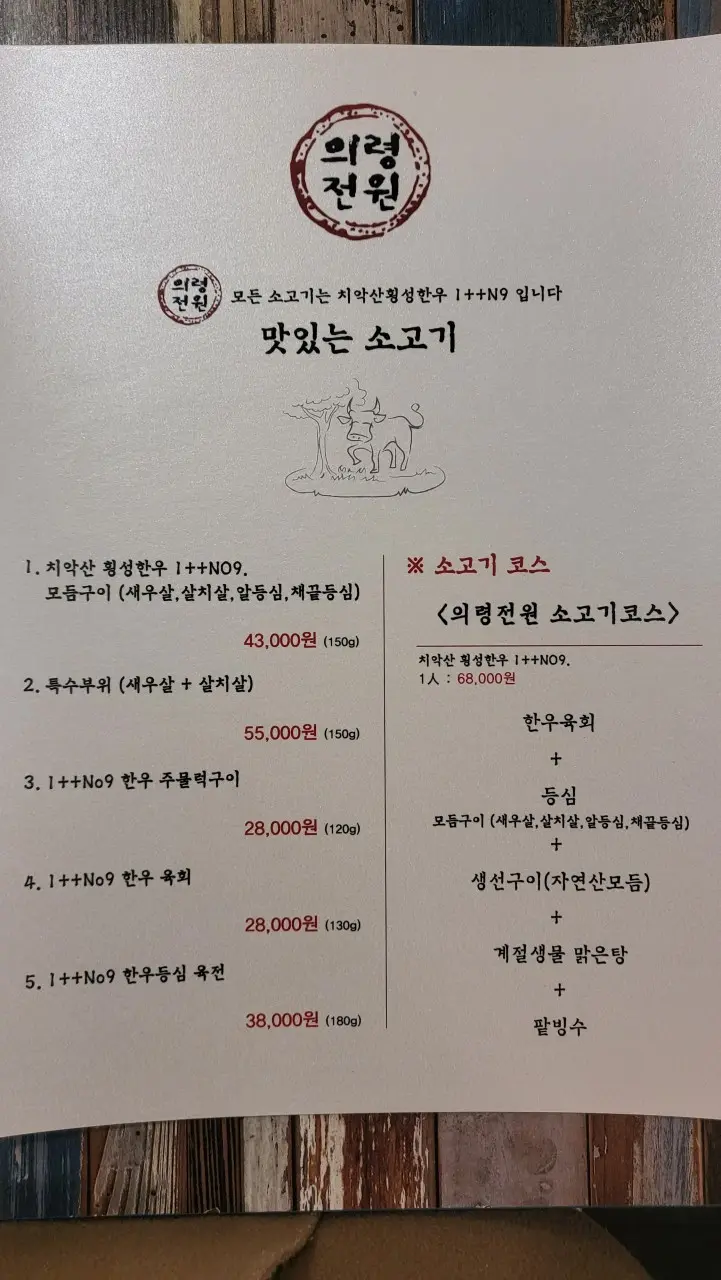 의령
전원
의령
전원
모든 소고기는 치악산횡성한우 1++N9 입니다
맛있는 소고기
1. 치악산 횡성한우 1++NO9.
모듬구이 (새우살,살치살,알등심,채끝등심)
43,000원 (150g)
2. 특수부위 (새우살 + 살치살)
55,000원 (150g)
3. 1++No9 한우 주물럭구이
28,000원 (120g)
4. 1++No9 한우 육회
28,000원 (130g)
5. 1++No9 한우등심 육전
38,000원 (180g)
※ 소고기 코스
<의령전원 소고기코스>
치악산 횡성한우 1++NO9.
1人 : 68,000원
한우육회
+
등심
모듬구이 (새우살,살치살,알등심,채끝등심)
+
생선구이(자연산모듬)
+
계절생물 맑은탕
+
팥빙수